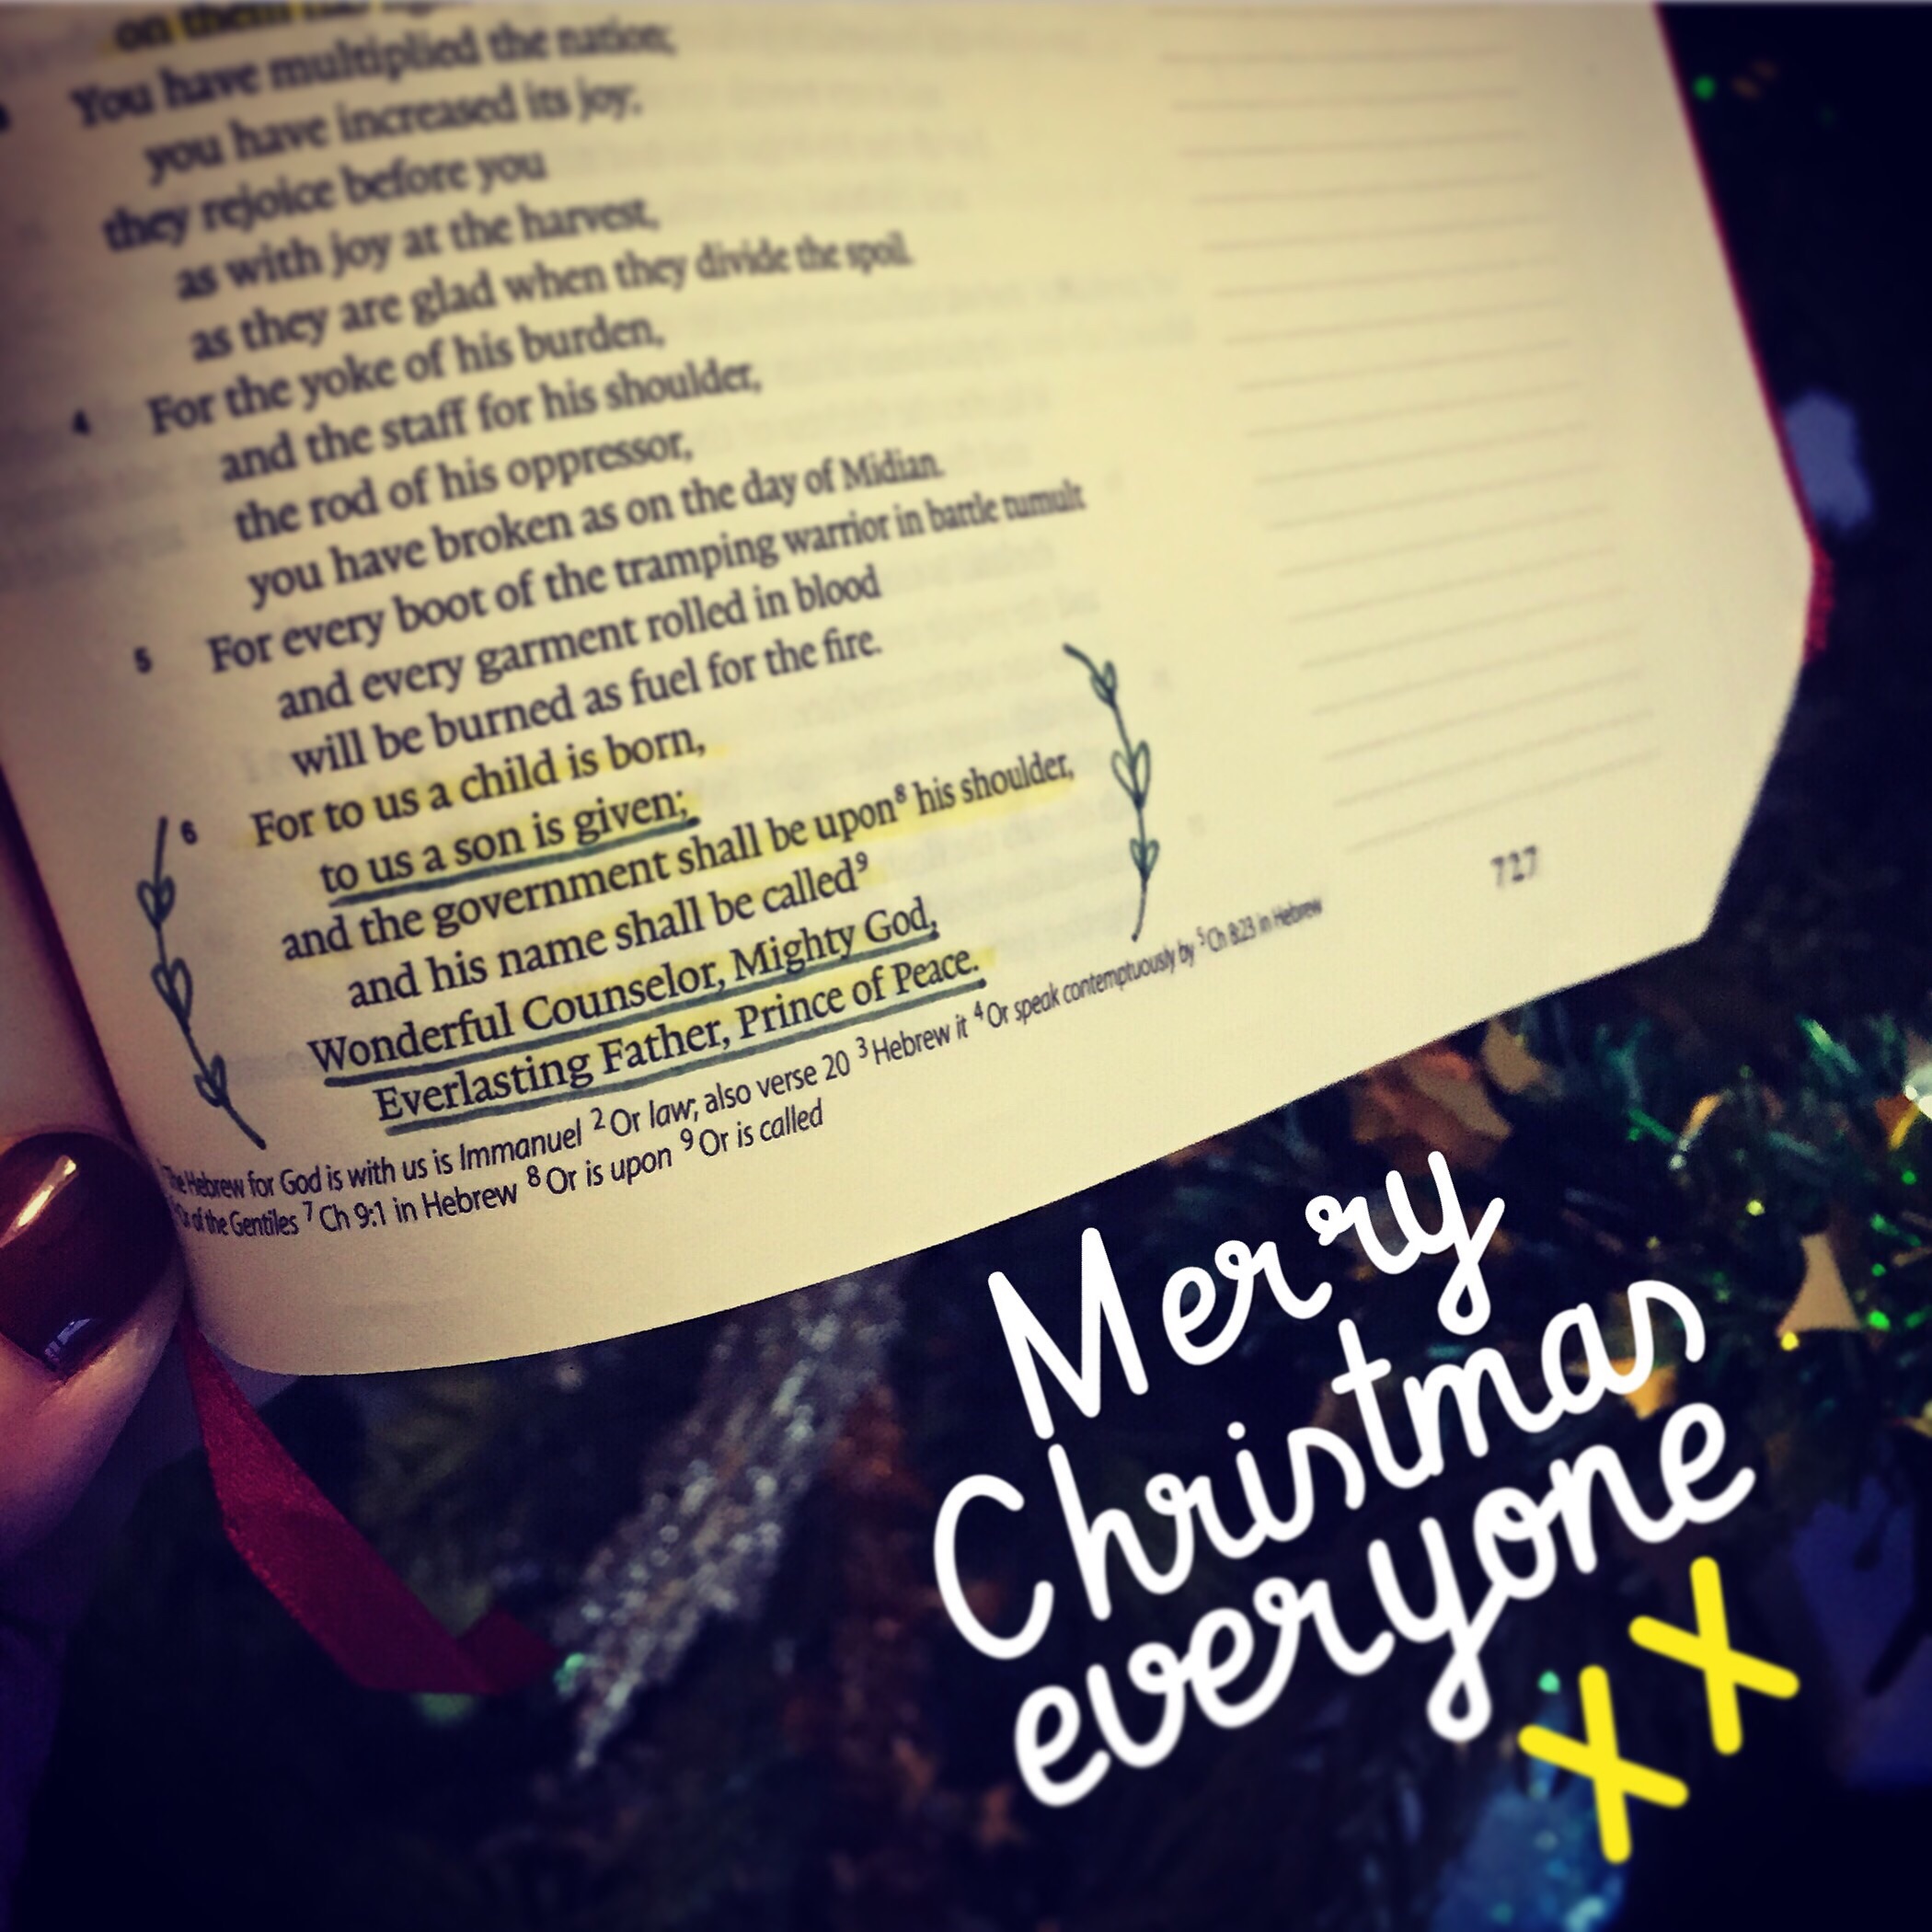 on them has
You have multiplied the nation;
you have increased its joy;
they rejoice before you
as with joy at the harvest,
as they are glad when they divide the spoil.
4 For the yoke of his burden,
and the staff for his shoulder,
the rod of his oppressor,
you have broken as on the day of Midian.
5 For every boot of the tramping warrior in battle tumult
and every garment rolled in blood
will be burned as fuel for the fire.
6 For to us a child is born,
to us a son is given;
and the government shall be upon⁸ his shoulder,
and his name shall be called⁹
Wonderful Counselor, Mighty God,
Everlasting Father, Prince of Peace.
The Hebrew for God is with us is Immanuel ² Or law; also verse 20 ³ Hebrew it ⁴ Or speak contemptuously by ⁵ Ch 8:23 in Hebrew
Or of the Gentiles ⁷ Ch 9:1 in Hebrew ⁸ Or is upon ⁹ Or is called
727
Merry
Christmas
everyone
XX